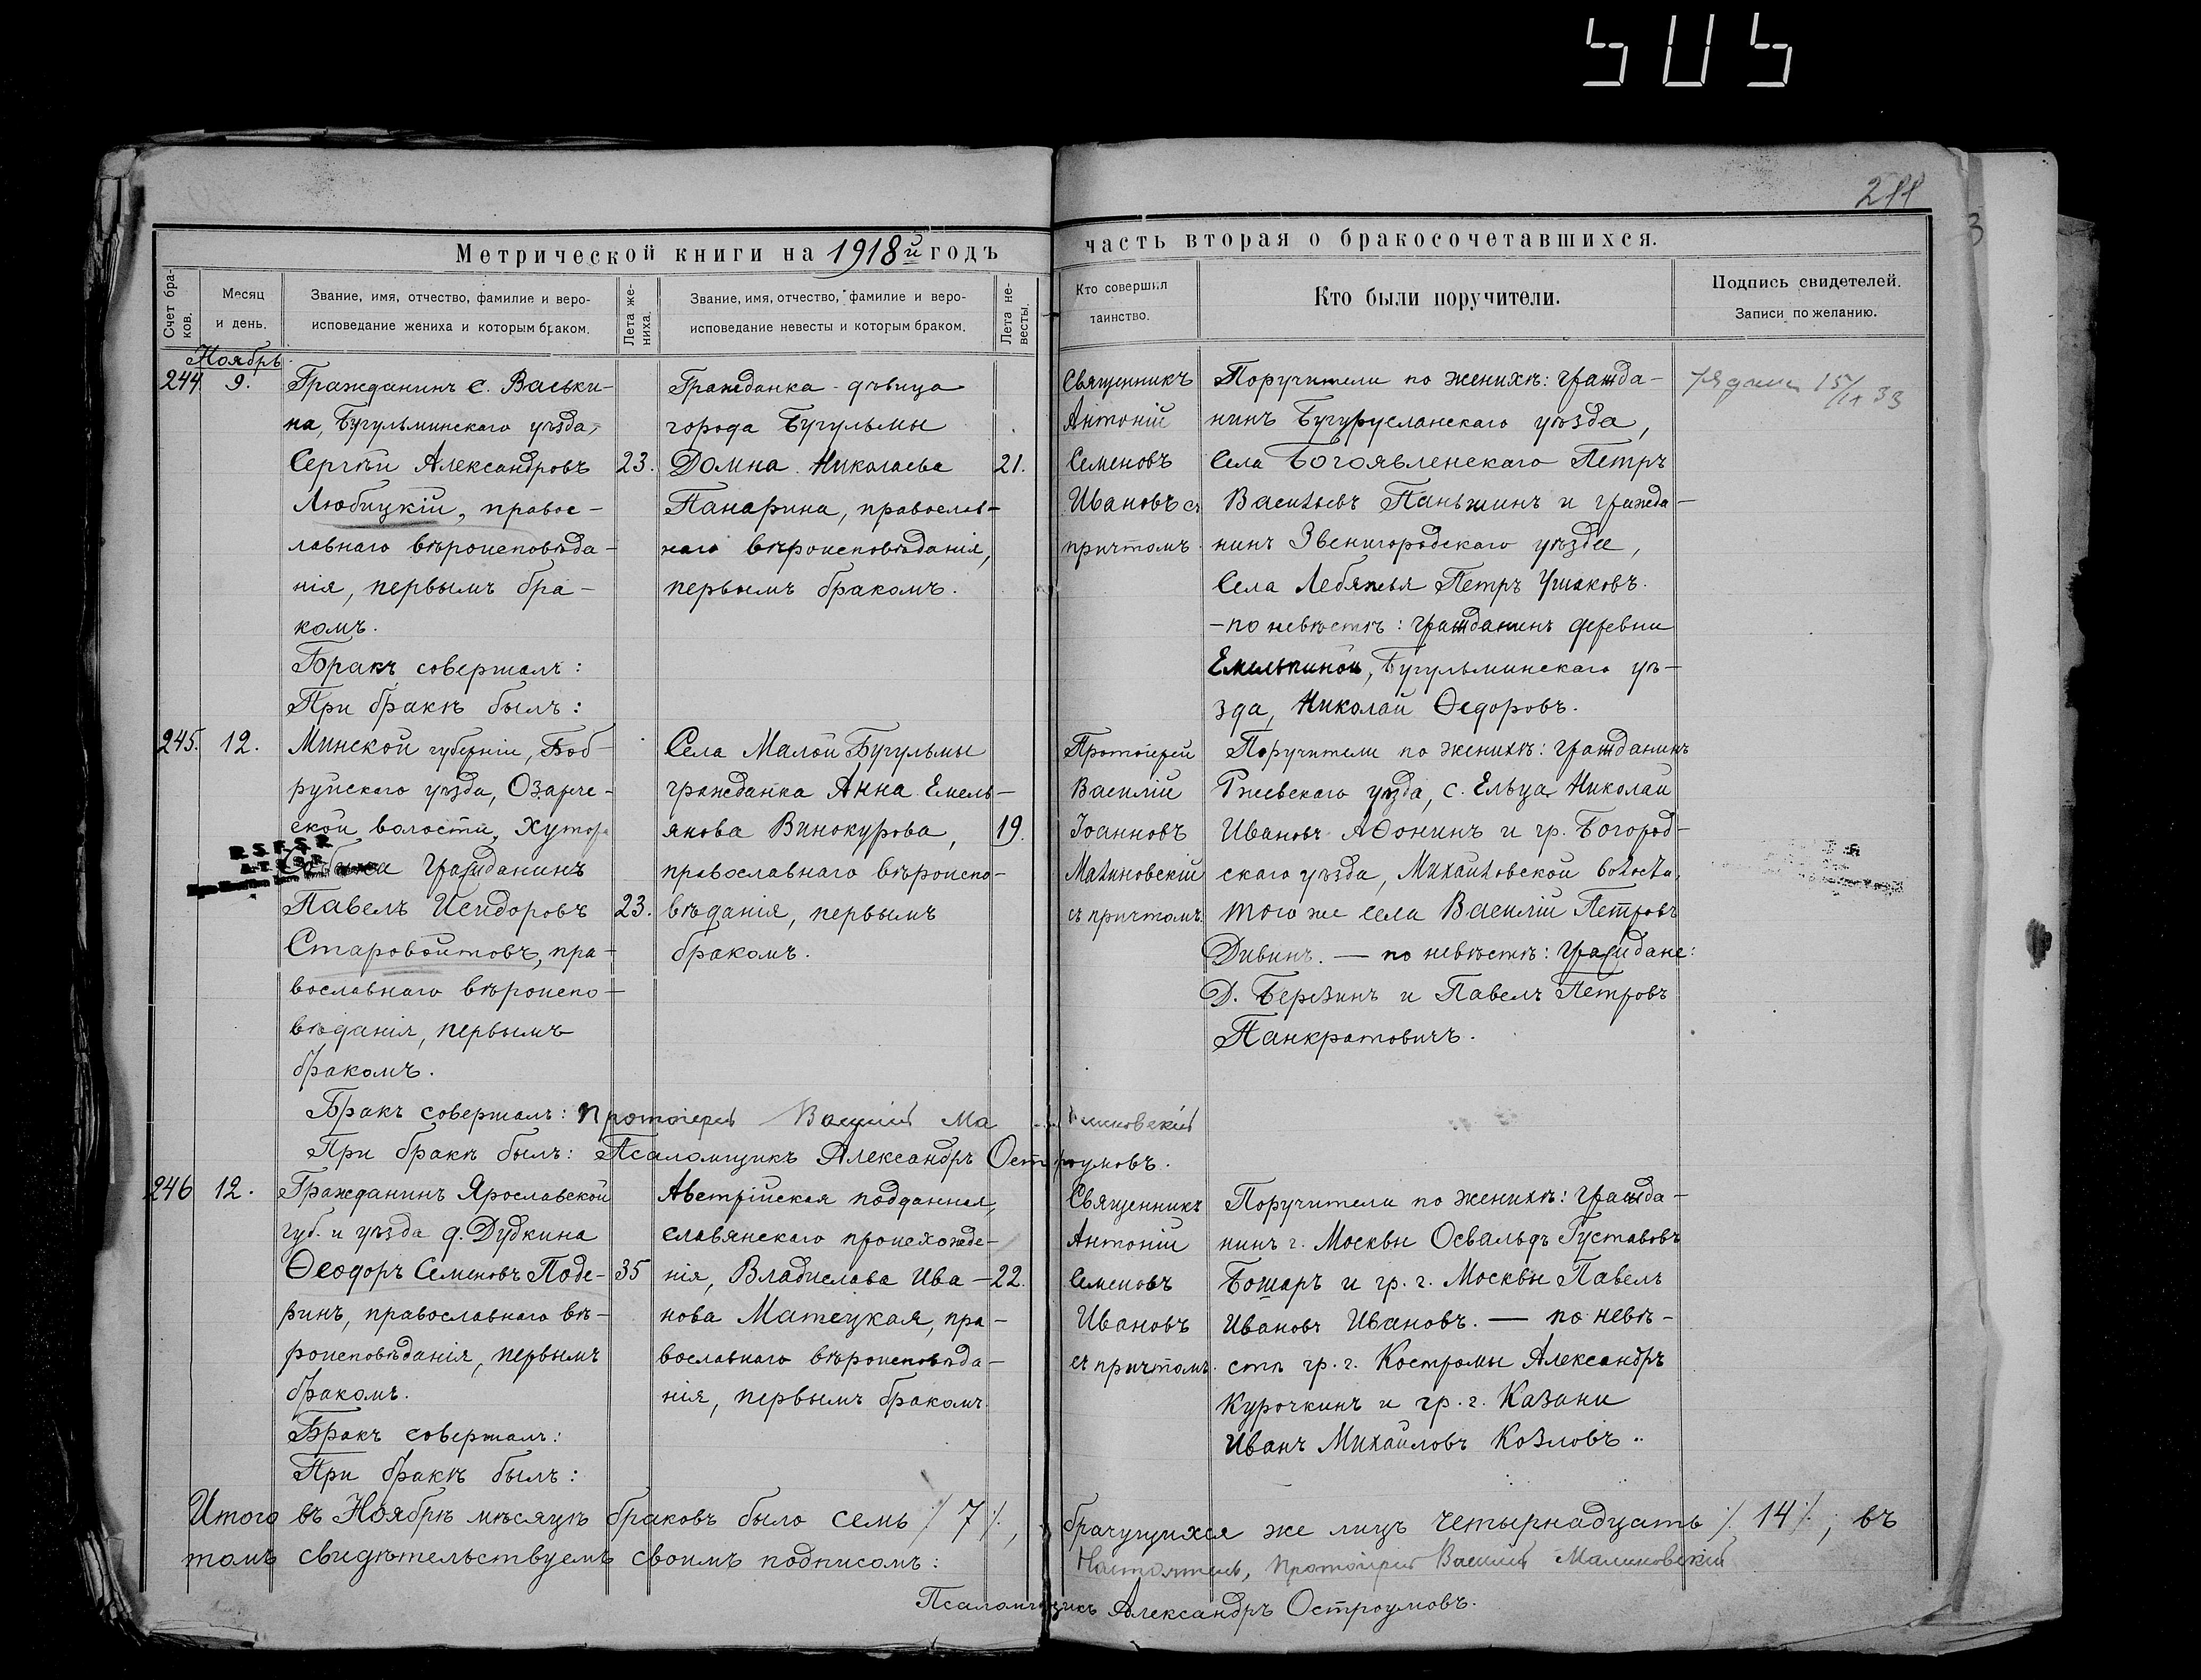 505
211
3
Метрической книги на 1918й годъ
часть вторая о бракосочетавшихся.
Счет браков.
Месяц и день.
Звание, имя, отчество, фамилие и вероисповедание жениха и которым браком.
Лета жениха.
Звание, имя, отчество, фамилие и вероисповедание невесты и которым браком.
Лета невесты.
Кто совершил таинство.
Кто были поручители.
Подпись свидетелей.
Записи по желанию.
Ноябрь
244. 9.
Гражданинъ с. Васьки-
на, Бугульминскаго уѣзда,
Сергѣй Александровъ 23.
Любицкій, правос-
лавнаго вѣроисповѣда-
нія, первымъ бра-
комъ.
Бракъ совершалъ:
При бракѣ былъ:
Гражданка - дѣвица
города Бугульмы
Домна Николаева 21.
Панарина, православ-
наго вѣроисповѣданія,
первымъ бракомъ.
Священникъ
Антоній
Семеновъ
Ивановъ съ
причтомъ
Поручители по женихѣ: гражда-
нинъ Бугурусланскаго уѣзда,
Села Богоявленскаго Петръ
Васильевъ Паньшинъ и гражда-
нинъ Звенигородскаго уѣзда,
Села Лебяжья Петръ Ушаковъ.
- по невѣстѣ: гражданинъ деревни
Емелькиной, Бугульминскаго уѣ-
зда, Николай Ѳедоровъ.
15/IX 33
245. 12.
Минской губерніи, Боб-
руйскаго уѣзда, Озариче-
ской волости, хутора
гражданинъ
Павелъ Исидоровъ 23.
Старовойтовъ, пра-
вославнаго вѣроиспо-
вѣданія, первымъ
бракомъ.
R.S.F.S.R.
A.T.S.S.R.
Села Малой Бугульмы
гражданка Анна Емель-
янова Винокурова, 19.
православнаго вѣроиспо-
вѣданія, первымъ
бракомъ.
Протоіерей
Василій
Іоанновъ
Малиновскій
съ причтомъ.
Поручители по женихѣ: гражданинъ
Ржевскаго уѣзда, с. Ельца Николай
Ивановъ Аѳонинъ и гр. Богород-
скаго уѣзда, Михайловской волости,
того же села Василій Петровъ
Дивинъ. — по невѣстѣ: граждане:
Д. Березинъ и Павелъ Петровъ
Панкратовичъ.
Бракъ совершалъ: Протоіерей Василій Малиновскій
При бракѣ былъ: Псаломщикъ Александръ Остроумовъ.
246 12.
Гражданинъ Ярославской
губ. и уѣзда д. Дудкина
Ѳеодоръ Семеновъ Поде- 35
ринъ, православнаго вѣ-
роисповѣданія, первымъ
бракомъ.
Бракъ совершалъ:
При бракѣ былъ:
Австрійская подданная,
славянскаго происхожде-
нія, Владислава Ива- 22.
нова Матецкая, пра-
вославнаго вѣроисповѣда-
нія, первымъ бракомъ.
Священникъ
Антоній
Семеновъ
Ивановъ
съ причтомъ.
Поручители по женихѣ: гражда-
нинъ г. Москвы Освальдъ Густавовъ
Бошаръ и гр. г. Москвы Павелъ
Ивановъ Ивановъ. — по невѣ-
стѣ гр. г. Костромы Александръ
Курочкинъ и гр. г. Казани
Иванъ Михайловъ Козловъ..
Итого въ Ноябрѣ мѣсяцѣ браковъ было семь ⁒ 7 ⁒, брачущихся же лицъ четырнадцать ⁒ 14 ⁒, въ
томъ свидѣтельствуемъ своимъ подписомъ: Настоятель, Протоіерей Василій Малиновскій
Псаломщикъ Александръ Остроумовъ.